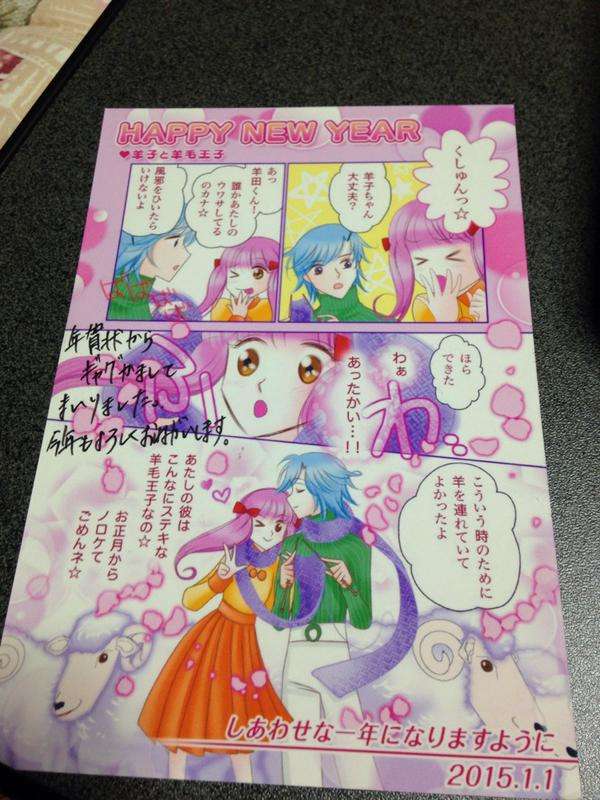 HAPPY NEW YEAR
♥羊子と羊毛王子
くしゅんっ☆
羊子ちゃん
大丈夫?
あっ
羊田くん!
誰かあたしの
ウワサしてる
のカナ☆
風邪をひいたら
いけないよ
ほら
できた
わぁ
あったかい…!!
ふわ
年賀状から
ギャグかまして
まいりました。
今年もよろしくお願いします。
こういう時のために
羊を連れていて
よかったよ
あたしの彼は
こんなにステキな
羊毛王子なの☆
お正月から
ノロケて
ごめんネ☆
しあわせな一年になりますように
2015.1.1